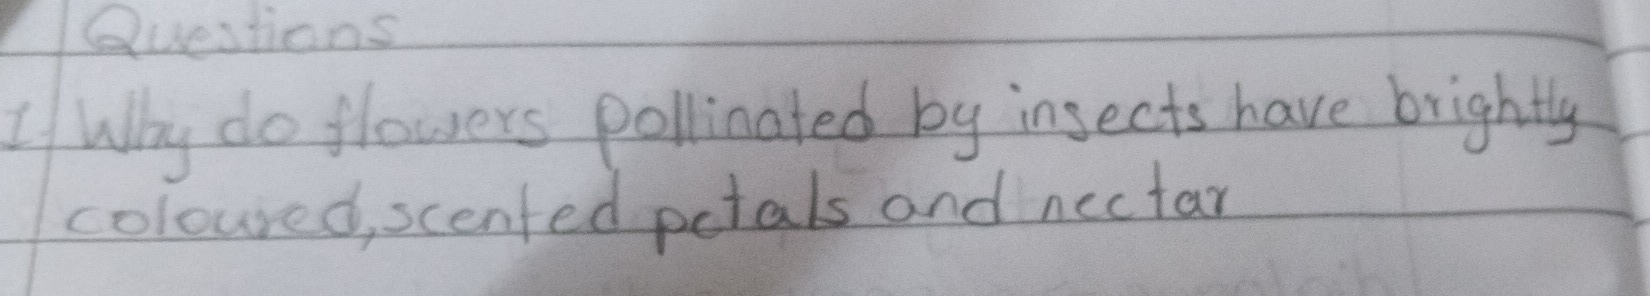 Questions
1 Why do flowers pollinated by insects have brightly
coloured, scented petals and nectar